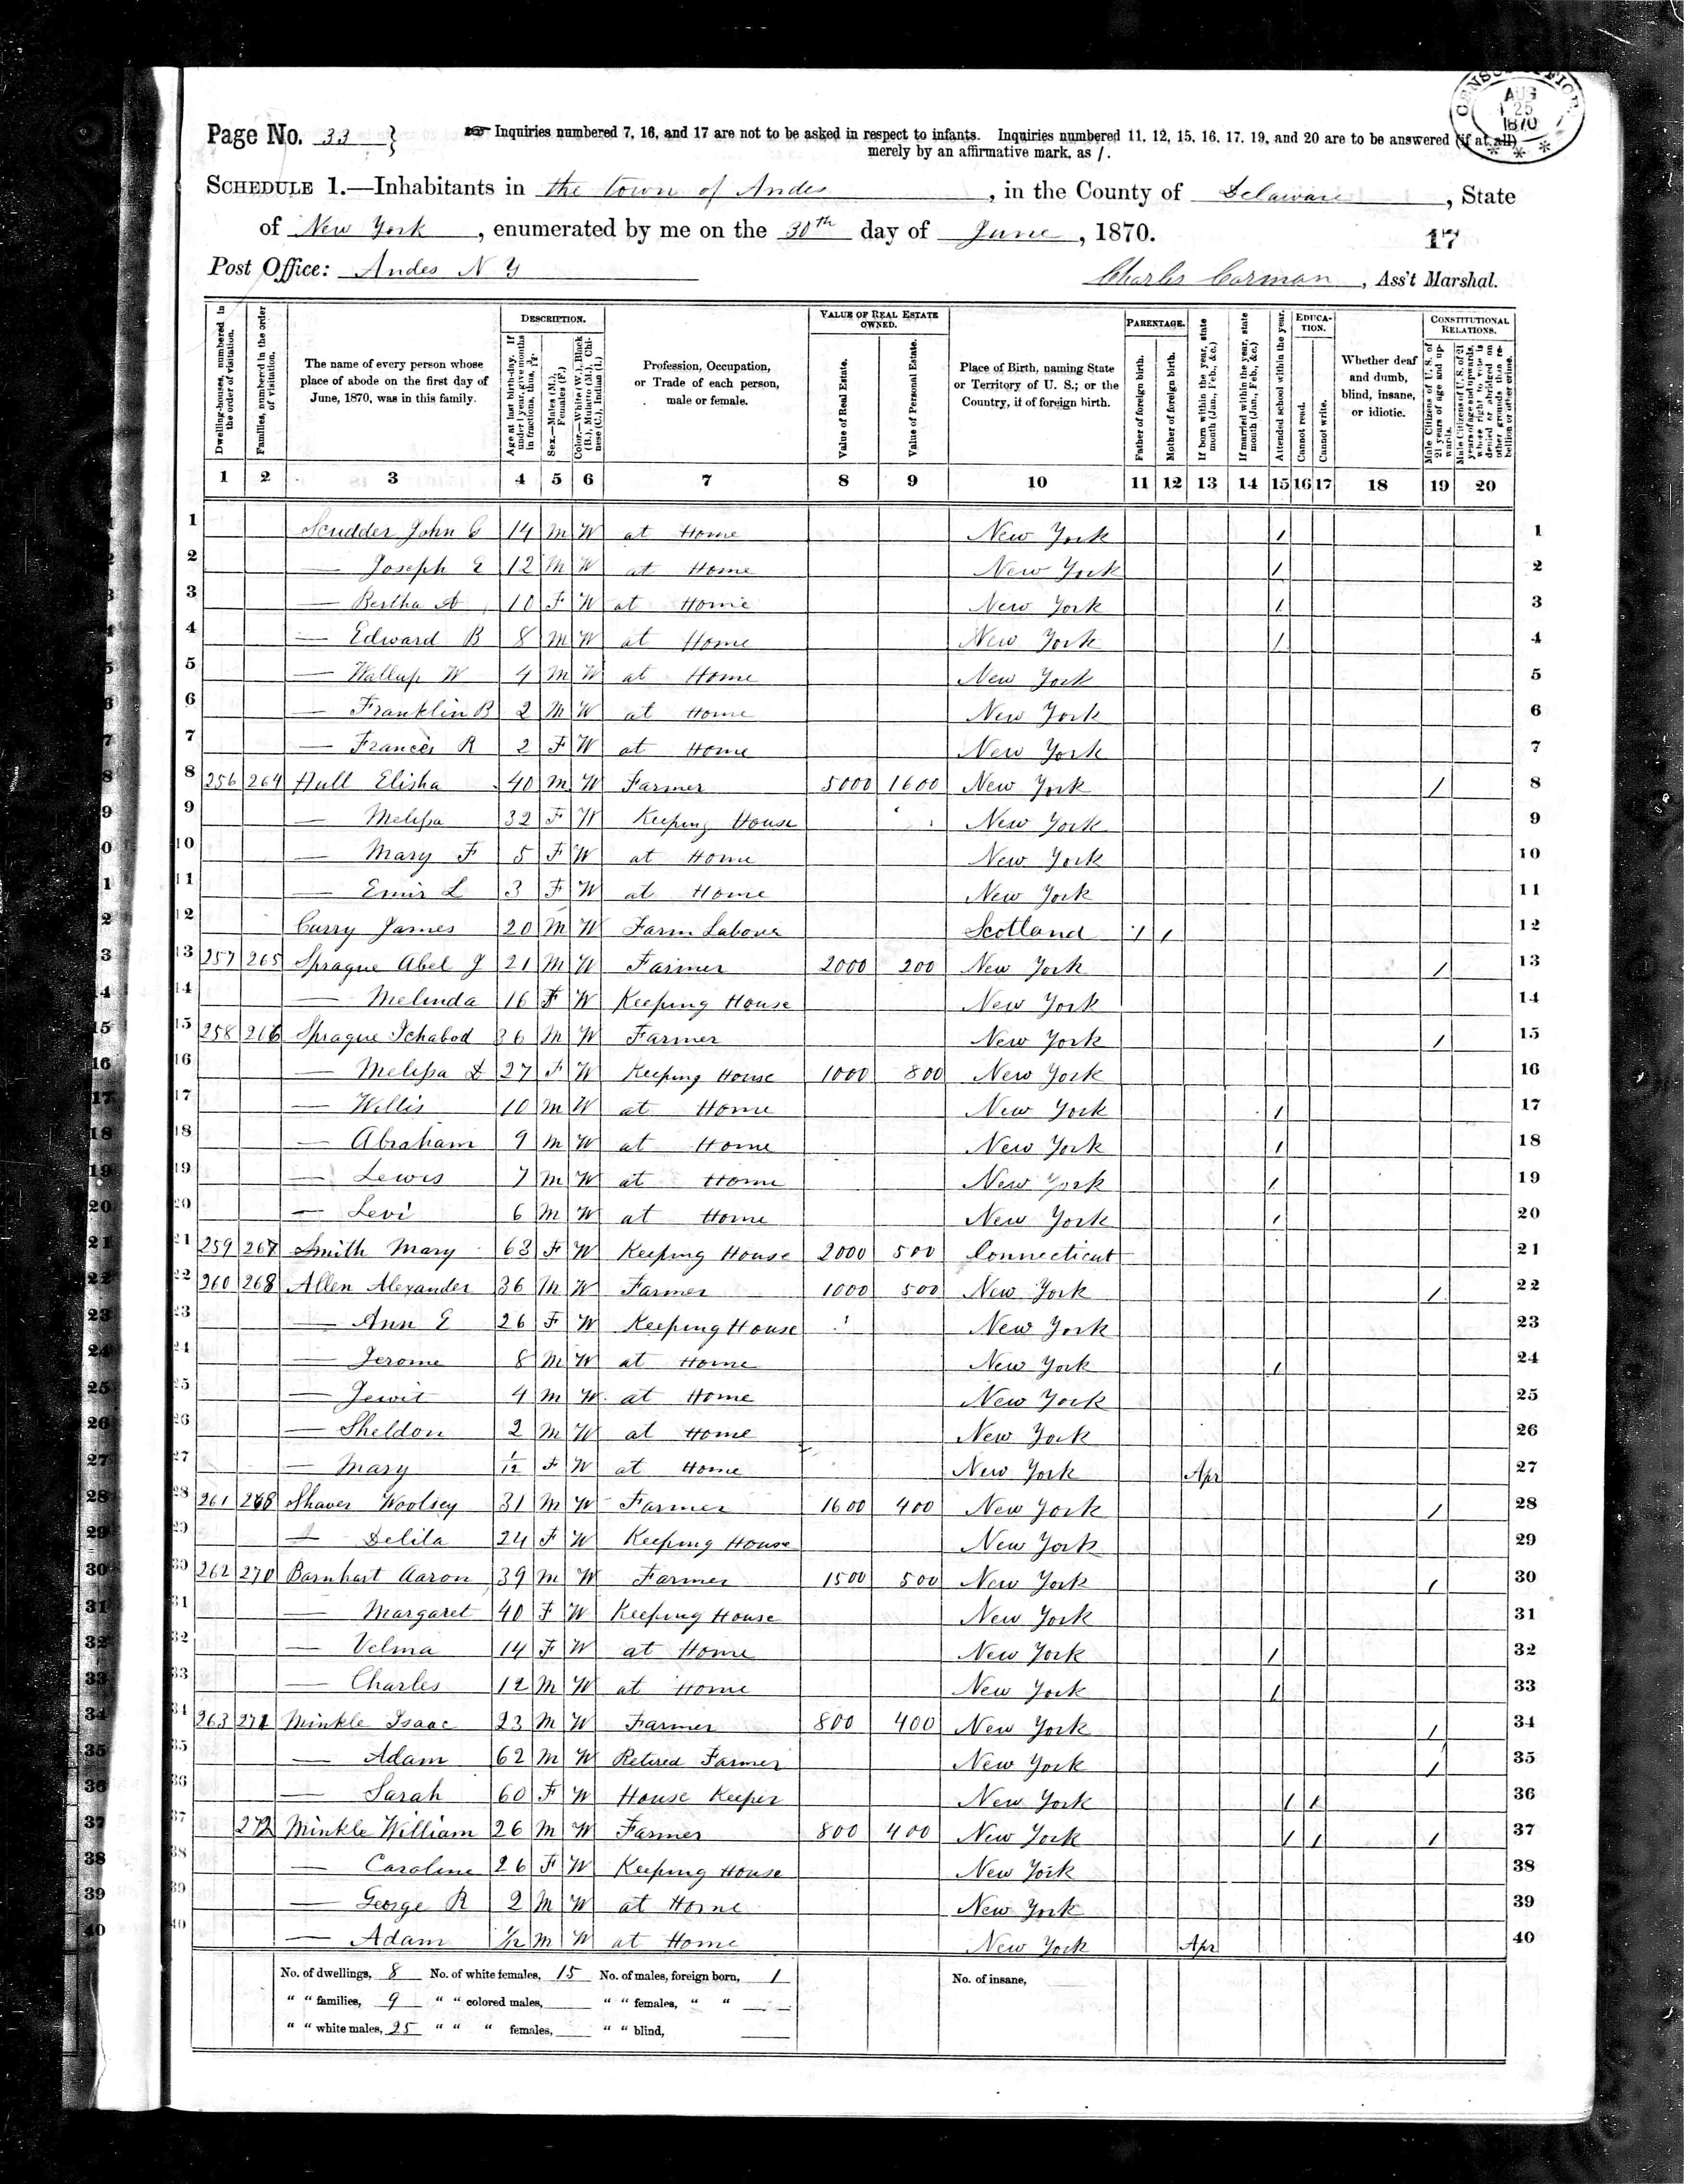 CENSUS OFFICE
AUG
25
1870
* * *
Page No. 33 } ☞ Inquiries numbered 7, 16, and 17 are not to be asked in respect to infants. Inquiries numbered 11, 12, 15, 16, 17, 19, and 20 are to be answered (if at all)
merely by an affirmative mark, as /.
SCHEDULE 1.—Inhabitants in the town of Andes, in the County of Delaware, State
of New York, enumerated by me on the 30th day of June, 1870.
17
Post Office: Andes N Y Charles Carman, Ass't Marshal.
Dwelling-houses, numbered in the order of visitation.
Families, numbered in the order of visitation.
The name of every person whose place of abode on the first day of June, 1870, was in this family.
DESCRIPTION.
Age at last birth-day. If under 1 year, give months in fractions, thus, 3/12.
Sex.—Males (M.), Females (F.)
Color.—White (W.), Black (B.), Mulatto (M.), Chinese (C.), Indian (I.)
Profession, Occupation, or Trade of each person, male or female.
VALUE OF REAL ESTATE OWNED.
Value of Real Estate.
Value of Personal Estate.
Place of Birth, naming State or Territory of U. S.; or the Country, if of foreign birth.
PARENTAGE.
Father of foreign birth.
Mother of foreign birth.
If born within the year, state month (Jan., Feb., &c.)
If married within the year, state month (Jan., Feb., &c.)
Attended school within the year.
EDUCATION.
Cannot read.
Cannot write.
Whether deaf and dumb, blind, insane, or idiotic.
CONSTITUTIONAL RELATIONS.
Male Citizens of U. S. of 21 years of age and upwards.
Male Citizens of U. S. of 21 years of age and upwards, whose right to vote is denied or abridged on other grounds than rebellion or other crime.
1 2 3 4 5 6 7 8 9 10 11 12 13 14 15 16 17 18 19 20
1 Scudder John C 14 M W at Home New York / 1
2 — Joseph E 12 M W at Home New York / 2
3 — Bertha A 10 F W at Home New York / 3
4 — Edward B 8 M W at Home New York / 4
5 — Wallup W 4 M W at Home New York 5
6 — Franklin B 2 M W at Home New York 6
7 — Frances R 2 F W at Home New York 7
8 256 264 Hull Elisha 40 M W Farmer 5000 1600 New York / 8
9 — Melissa 32 F W Keeping House New York 9
10 — Mary F 5 F W at Home New York 10
11 — Emir L 3 F W at Home New York 11
12 Curry James 20 M W Farm Labover Scotland / / 12
13 257 265 Sprague Abel J 21 M W Farmer 2000 200 New York / 13
14 — Melinda 16 F W Keeping House New York 14
15 258 266 Sprague Ichabod 36 M W Farmer New York / 15
16 — Melissa D 27 F W Keeping House 1000 800 New York 16
17 — Willis 10 M W at Home New York / 17
18 — Abraham 9 M W at Home New York / 18
19 — Lewis 7 M W at Home New York / 19
20 — Levi 6 M W at Home New York / 20
21 259 267 Smith Mary 63 F W Keeping House 2000 500 Connecticut 21
22 260 268 Allen Alexander 36 M W Farmer 1000 500 New York / 22
23 — Ann E 26 F W Keeping House New York 23
24 — Jerome 8 M W at Home New York / 24
25 — Jewit 4 M W at Home New York 25
26 — Sheldon 2 M W at Home New York 26
27 — Mary 1/12 F W at Home New York Apr 27
28 261 269 Shaver Woolsey 31 M W Farmer 1600 400 New York / 28
29 — Delila 24 F W Keeping House New York 29
30 262 270 Barnhart Aaron 39 M W Farmer 1500 500 New York / 30
31 — Margaret 40 F W Keeping House New York 31
32 — Velma 14 F W at Home New York / 32
33 — Charles 12 M W at Home New York / 33
34 263 271 Minkle Isaac 23 M W Farmer 800 400 New York / 34
35 — Adam 62 M W Retired Farmer New York / 35
36 — Sarah 60 F W House Keeper New York / / 36
37 272 Minkle William 26 M W Farmer 800 400 New York / / / 37
38 — Caroline 26 F W Keeping House New York 38
39 — George R 2 M W at Home New York 39
40 — Adam 1/12 M W at Home New York Apr 40
No. of dwellings, 8 No. of white females, 15 No. of males, foreign born, 1 No. of insane,
" " families, 9 " " colored males, " " females, " "
" " white males, 25 " " " females, " " blind,